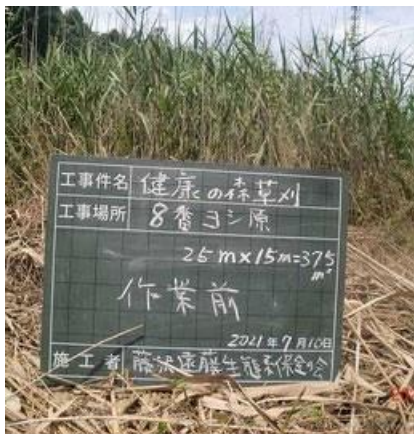 工事件名 健康の森草刈
工事場所 8番ヨシ原
25m×15m=375m²
作業前
2021年7月10日
施工者 藤沢遠藤生態系保全の会